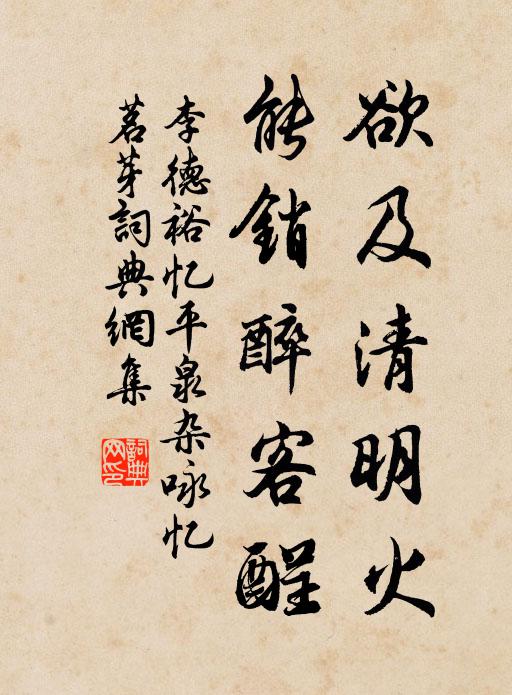 欲及清明火
能銷醉客酲
李德裕忆平泉杂咏忆
茗芽詞典網集
詞典网印